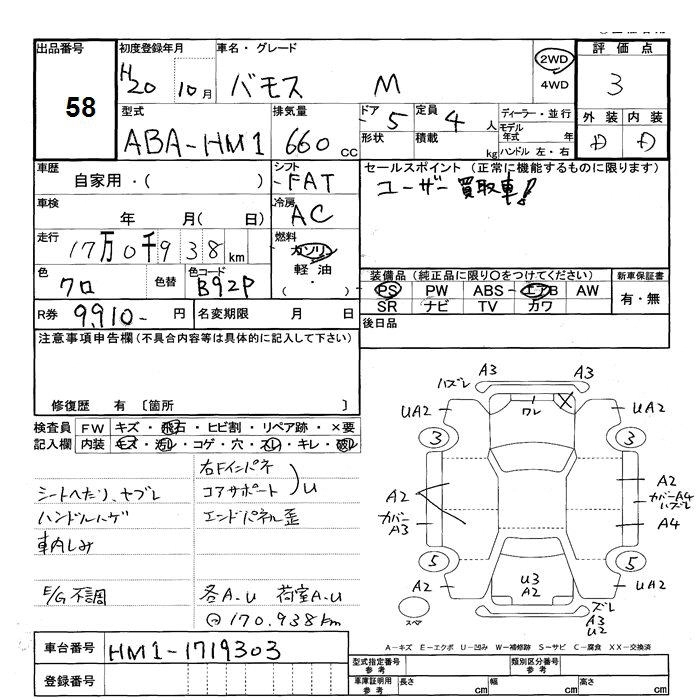 出品番号 初度登録年月 車名・グレード 2WD 4WD 評価点
58 H20 10月 バモス M 3
型式 排気量 ドア 5 定員 4人 ディーラー・並行 外装 内装
ABA-HM1 660cc 形状 積載 kg モデル年式 年 ハンドル 左・右 D D
車歴 シフト セールスポイント (正常に機能するものに限ります)
自家用・( ) FAT ユーザー買取車!
車検 年 月( 日) 冷房 AC
走行 17万0千938km 燃料 ガソリン 軽油 ・ ( )
色 クロ 色替 色コード B92P
装備品 (純正品に限り○をつけてください) 新車保証書
PS PW ABS エアB AW 有・無
SR ナビ TV カワ
R券 9,910- 円 名変期限 月 日 後日品
注意事項申告欄(不具合内容等は具体的に記入して下さい)
修復歴 有 〔箇所 〕
検査員 FW キズ・飛石・ヒビ割・リペア跡・×要
記入欄 内装 キズ・汚レ・コゲ・穴・スレ・キレ・破レ
右Fインパネ
シートへたり、ヤブレ コアサポート U
ハンドルハゲ エンドパネル歪
車内しみ
E/G不調 各A.U 荷室A.U
170.938km
A3 A3
ハズレ ワレ
UA2 UA2
3 3
A2 A2
カバーA3 カバーA4 ハズレ
A4
5 5
A2 U3 A2 UA2
スペア ズレ A3 U2
A-キズ E-エクボ U-凹み W-補修跡 S-サビ C-腐食 XX-交換済
車台番号 HM1-1719303
型式指定番号 参考 類別区分番号 参考
登録番号
車庫証明用 参考 長さ cm 幅 cm 高さ cm